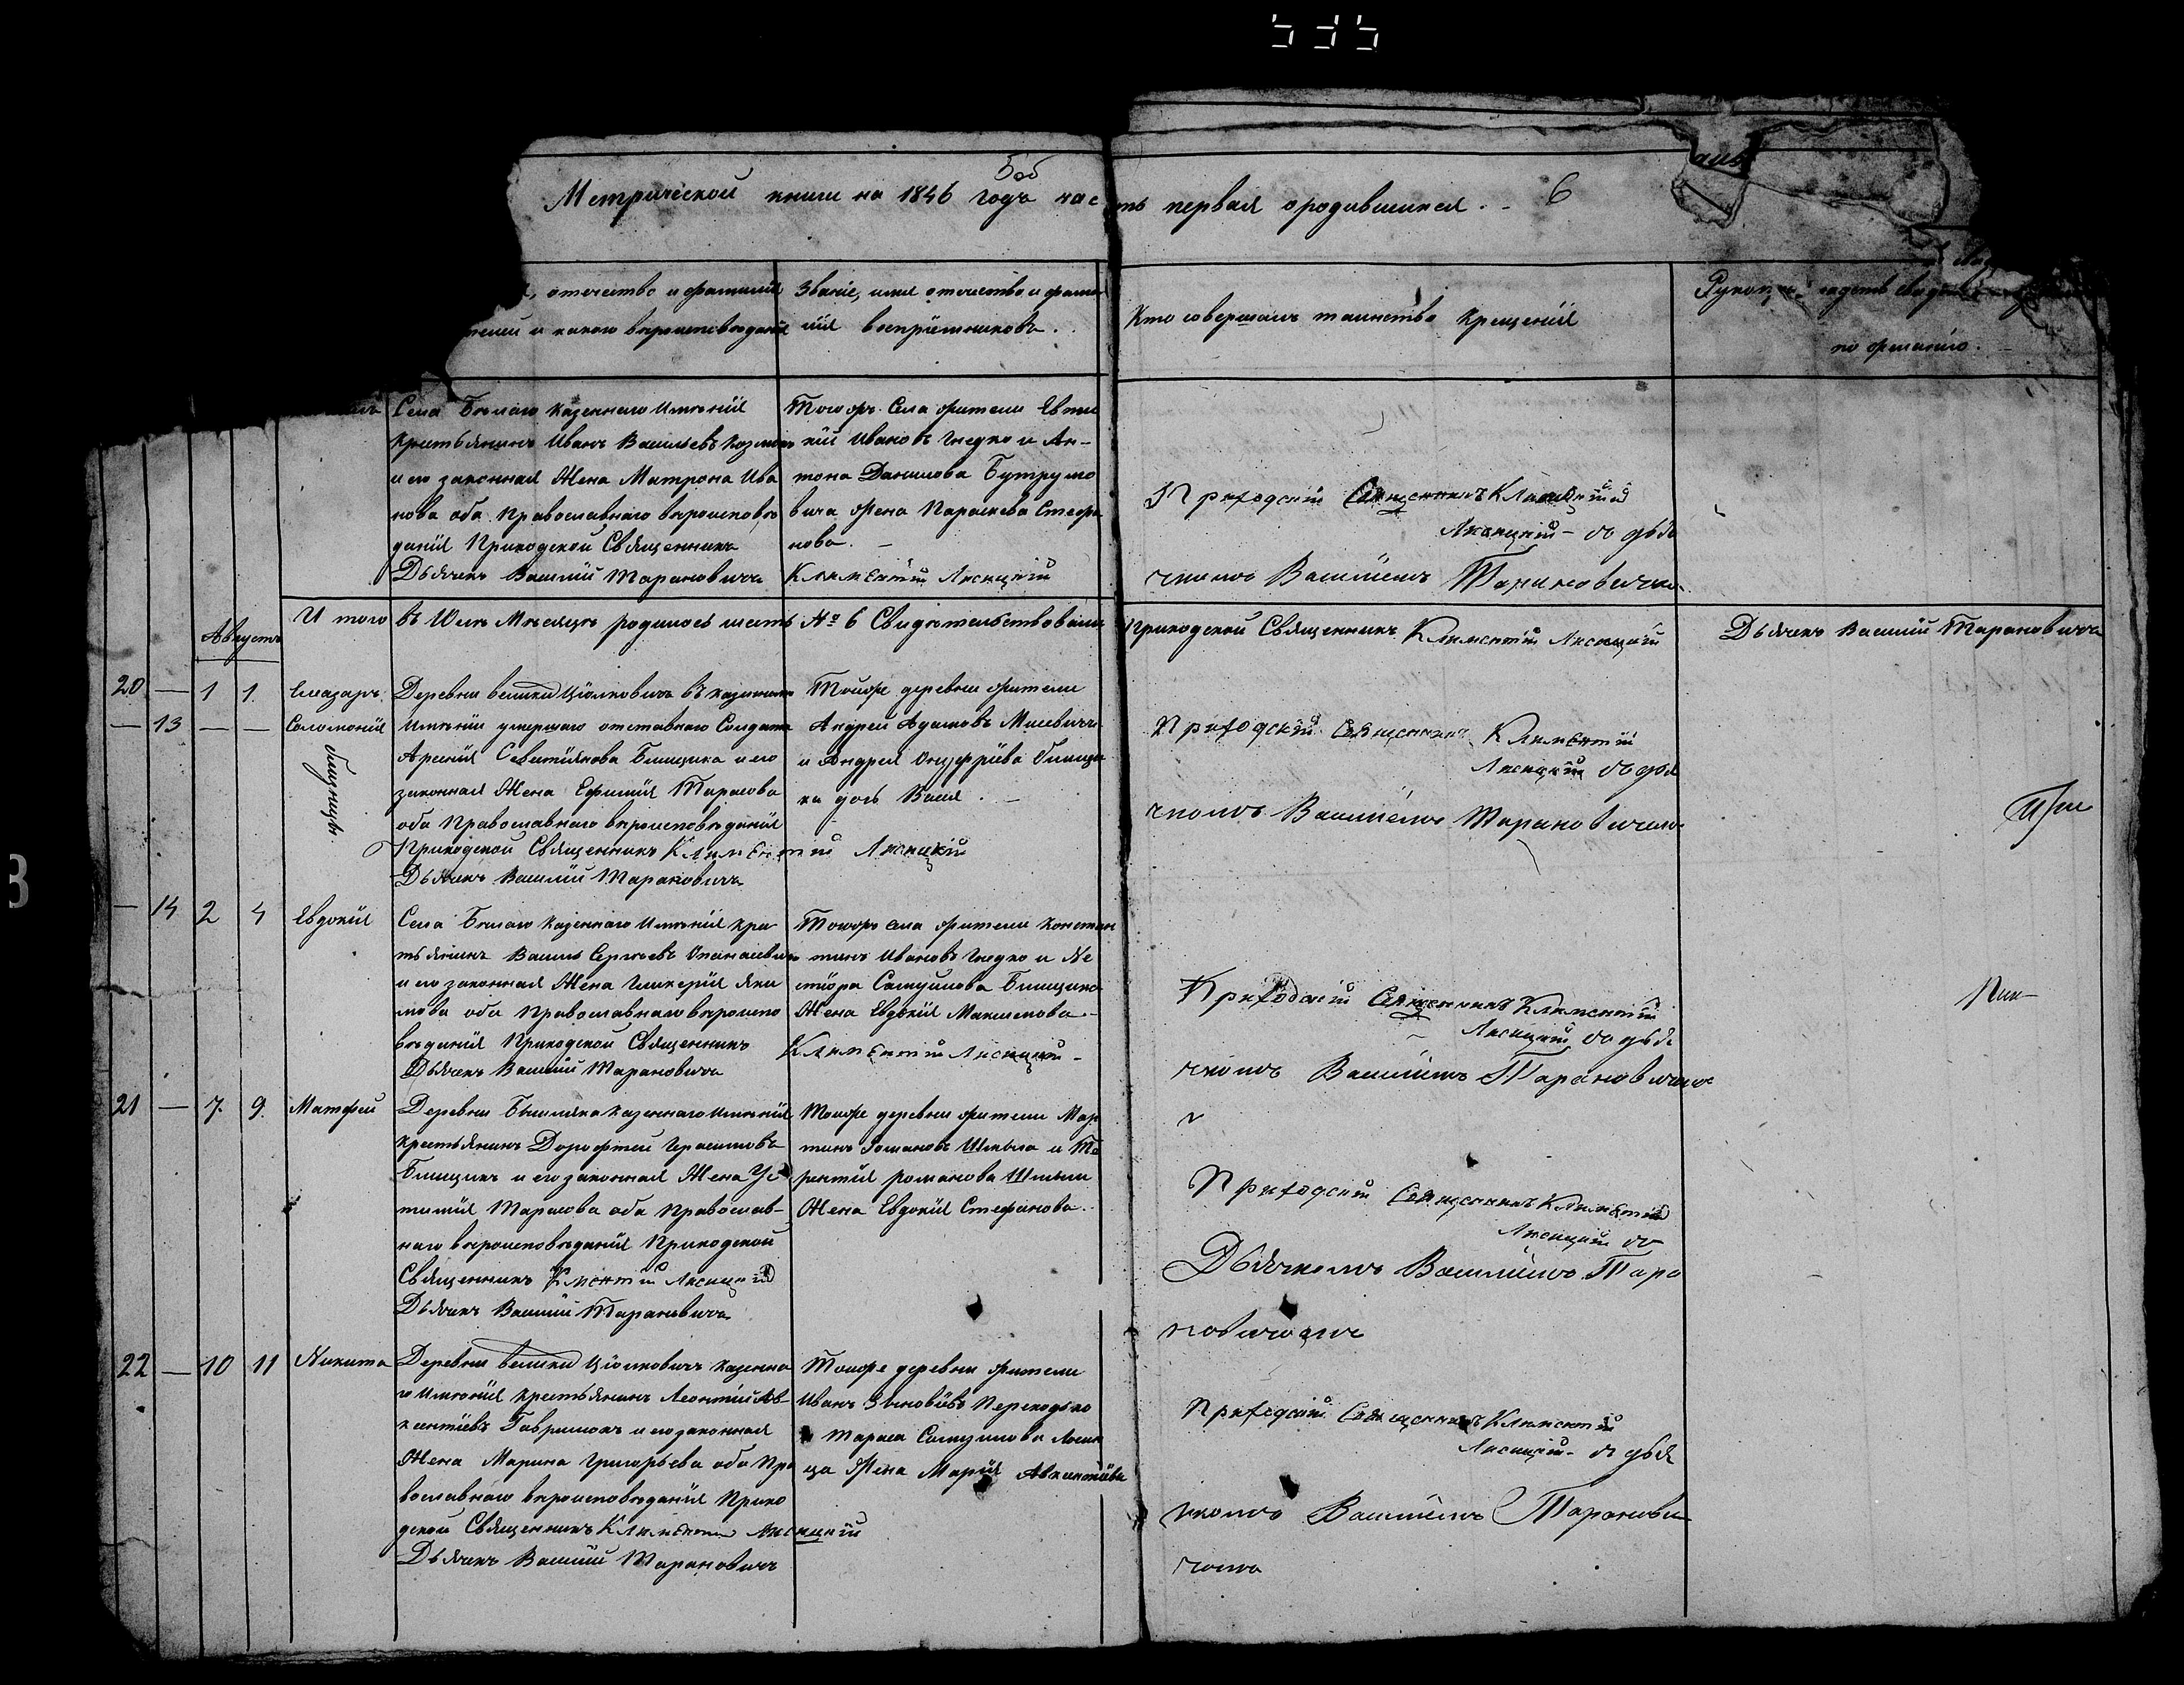 535
5 об
Метрической книги на 1846 годъ часть первая о родившихся. 6
отчество и фамилія
и какого вероисповеданія
Званіе, имя отчество и фами
лія воспріемниковъ.
Кто совершалъ таинство крещенія
по желанію.
Села Белаго казеннаго Именія
крестьянинъ Иванъ Васильевъ
и его законная Жена Матрона Ива
нова оба Православнаго вероисповѣ
данія Приходской Священникъ
Дьячекъ Василій Тарановичъ
Тогожъ Села жители Евти
хій Ивановъ Гнедко и Ан-
тона Данилова Бутрымо
вича жена Параскева Стефа
нова.
Климентій Лисицкій
Приходскій Священникъ Климентій
Лисицкій - съ дья
чкомъ Василіемъ Тарановичемъ
Итого въ Юлѣ Месяцѣ родилось шесть № 6 Свидетельствовали
Приходской Священникъ Климентій Лисицкій
Дьячекъ Василій Тарановичъ
Августъ
20 — 1 1.
Елеазаръ
— 13 — —
Соломонія
близнецы
Деревни велики Ціолковичъ въ казенномъ
Именіи умершаго отставнаго Солдата
Арсенія Севастіянова Блищика и его
законная Жена Ефимія Тарасова
оба Православнаго вероисповѣданія
Приходской Священникъ Климентій Лисицкій
Дьячекъ Василій Тарановичъ
Тойже деревни жители
Андрей Адамовъ Мисевичъ
и Андрея Онуфріева Блищи
ка дочь
Приходскій Священникъ Климентій
Лисицкій съ дья
чкомъ Василіемъ Тарановичемъ
— 14 2 4
Евдокія
Села Белаго казеннаго Именія кре
стьянинъ Василь Сергѣевъ
и его законная Жена Гликерія Яки
мова оба Православнаго вероиспо
веданія Приходской Священникъ
Дьячекъ Василій Тарановичъ
Тогожъ села жители Констан
тинъ Ивановъ Гнедко и Не
стора Самуилова Блищика
Жена Евдокія Максимова.
Климентій Лисицкій -
Приходскій Священникъ Климентій
Лисицкій съ дья
чкомъ Василіемъ Тарановичемъ
21 — 7. 9.
Матфей
Деревни казеннаго Именія
крестьянинъ Дорофтей Герасимовъ
Блищикъ и его законная Жена Ус
тинія Тарасова оба Православ-
наго вероисповѣданія Приходской
Священникъ Климентій Лисицкій
Дьячекъ Василій Тарановичъ
Тойже деревни жители Мар
тинъ Романовъ Шмыга и Те
рентія романова Шмыги
Жена Евдокія Стефанова.
Приходскій Священникъ Климентій
Лисицкій съ
Дьячкомъ Василіемъ Тара
новичемъ
22 — 10 11
Никита
Деревни велики Ціолковичъ казенна
го Именія крестьянинъ Леонтій Ав-
ксентіевъ Гаврилюкъ и его законная
Жена Марина Григорьева оба Пра
вославнаго вероисповѣданія Прихо
дской Священникъ Климентій Лисицкій
Дьячекъ Василій Тарановичъ
Тойже деревни жители
Иванъ Зиновіевъ Переходько
и Тараса Самуилова
ца Жена Марія Авксентіева
Приходскій Священникъ Климентій
Лисицкій - съ дья
чкомъ Василіемъ Таранови
чемъ